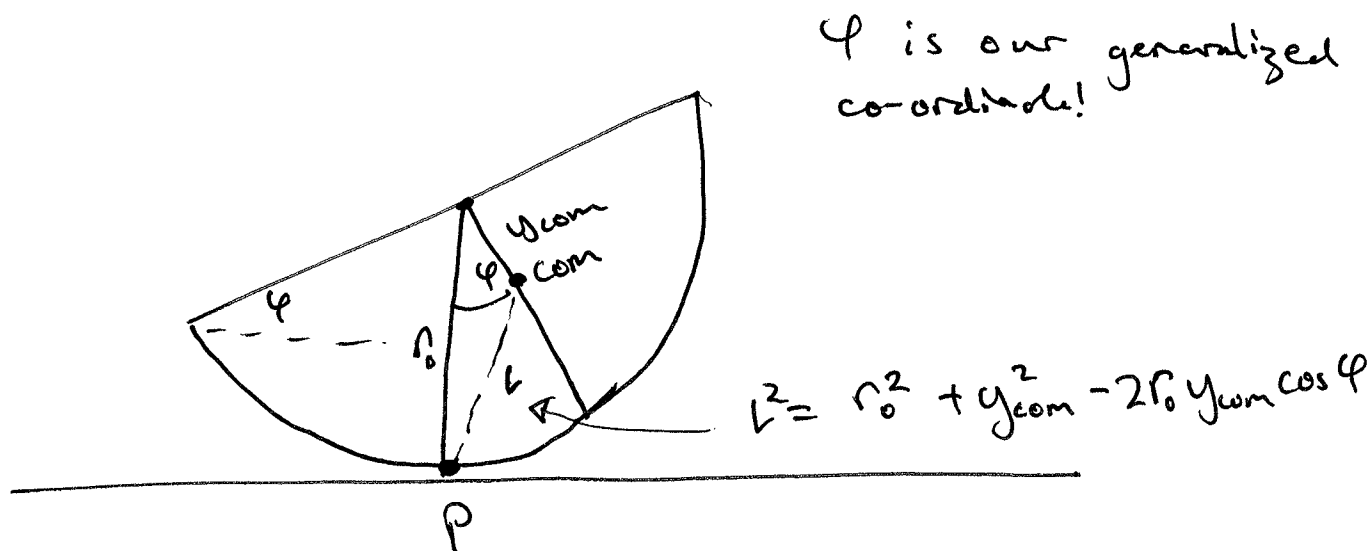 φ is our generalized
co-ordinate!
ycom
φ com
φ
r₀
L
L² = r₀² + y²com - 2r₀ ycom cos φ
P